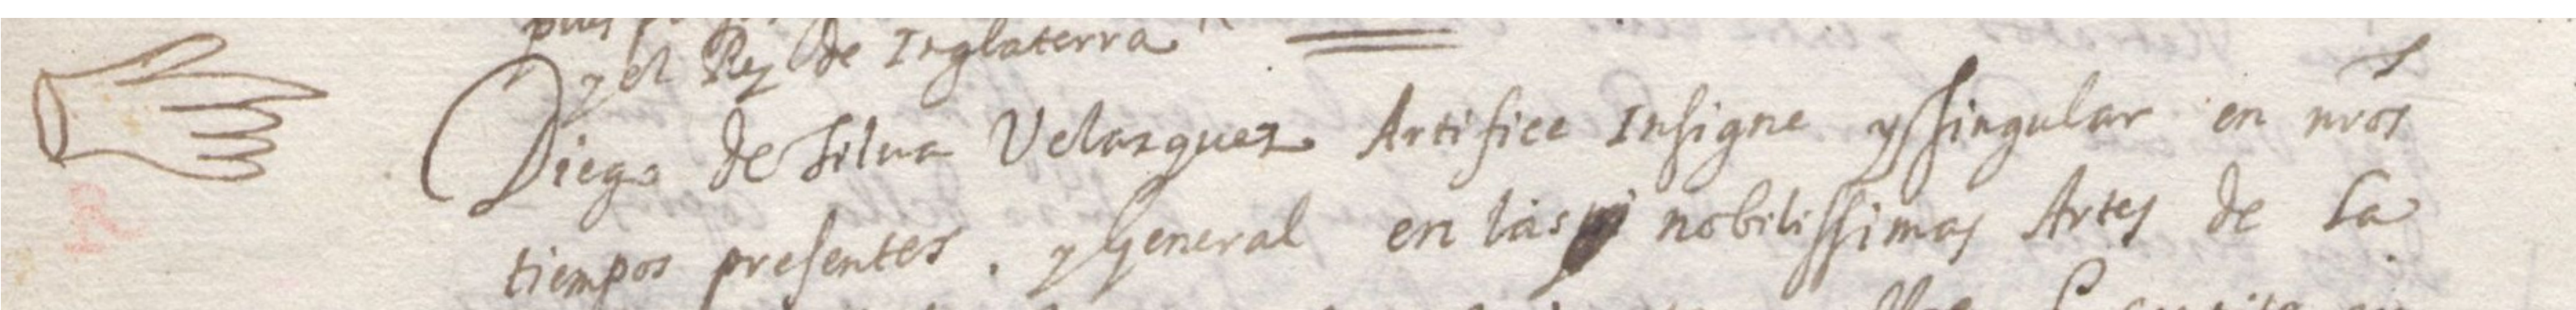 y el Rey de Inglaterra
Diego de silua Velazquez Artifice Insigne y singular en nros
tiempos presentes. y General en las nobilissimas Artes de la